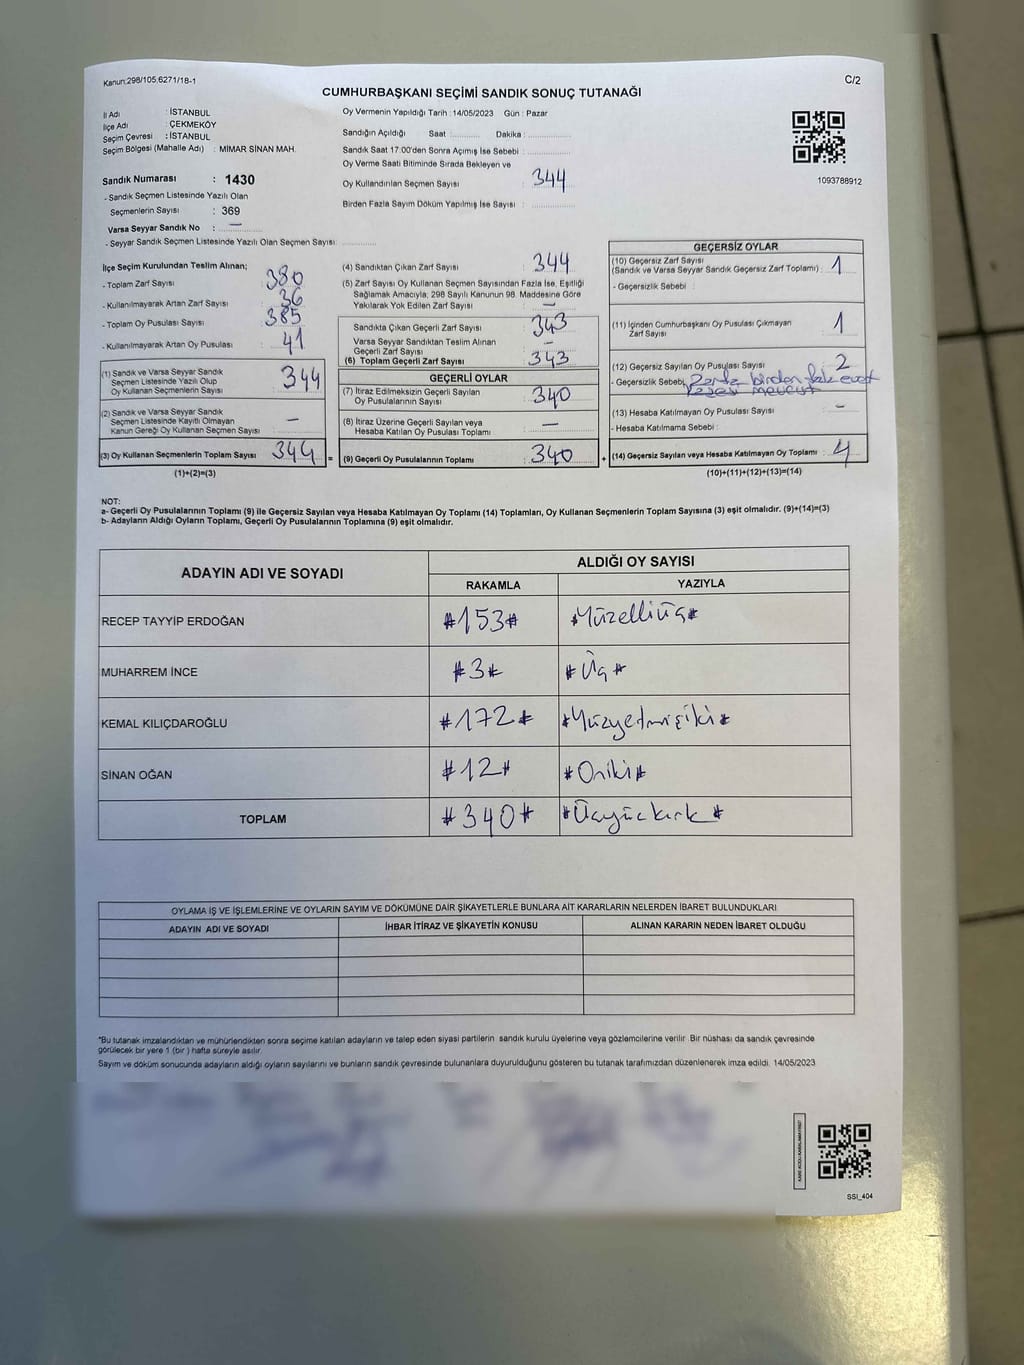 Kanun:298/105,6271/18-1
C/2
CUMHURBAŞKANI SEÇİMİ SANDIK SONUÇ TUTANAĞI
İl Adı : İSTANBUL
İlçe Adı : ÇEKMEKÖY
Seçim Çevresi : İSTANBUL
Seçim Bölgesi (Mahalle Adı) : MİMAR SİNAN MAH.
Sandık Numarası : 1430
- Sandık Seçmen Listesinde Yazılı Olan
Seçmenlerin Sayısı : 369
Varsa Seyyar Sandık No : —
- Seyyar Sandık Seçmen Listesinde Yazılı Olan Seçmen Sayısı:
Oy Vermenin Yapıldığı Tarih : 14/05/2023 Gün : Pazar
Sandığın Açıldığı Saat : Dakika :
Sandık Saat 17.00'den Sonra Açımış İse Sebebi :
Oy Verme Saati Bitiminde Sırada Bekleyen ve
Oy Kullandırılan Seçmen Sayısı : 344
Birden Fazla Sayım Döküm Yapılmış İse Sayısı :
1093788912
İlçe Seçim Kurulundan Teslim Alınan;
- Toplam Zarf Sayısı : 380
- Kullanılmayarak Artan Zarf Sayısı : 36
- Toplam Oy Pusulası Sayısı : 385
- Kullanılmayarak Artan Oy Pusulası : 41
(1) Sandık ve Varsa Seyyar Sandık
Seçmen Listesinde Yazılı Olup
Oy Kullanan Seçmenlerin Sayısı : 344
(2) Sandık ve Varsa Seyyar Sandık
Seçmen Listesinde Kayıtlı Olmayan
Kanun Gereği Oy Kullanan Seçmen Sayısı : —
(3) Oy Kullanan Seçmenlerin Toplam Sayısı : 344
(1)+(2)=(3)
(4) Sandıktan Çıkan Zarf Sayısı : 344
(5) Zarf Sayısı Oy Kullanan Seçmen Sayısından Fazla İse, Eşitliği
Sağlamak Amacıyla; 298 Sayılı Kanunun 98. Maddesine Göre
Yakılarak Yok Edilen Zarf Sayısı : —
Sandıkta Çıkan Geçerli Zarf Sayısı : 343
Varsa Seyyar Sandıktan Teslim Alınan
Geçerli Zarf Sayısı : —
(6) Toplam Geçerli Zarf Sayısı : 343
GEÇERLİ OYLAR
(7) İtiraz Edilmeksizin Geçerli Sayılan
Oy Pusulalarının Sayısı : 340
(8) İtiraz Üzerine Geçerli Sayılan veya
Hesaba Katılan Oy Pusulası Toplamı : —
= (9) Geçerli Oy Pusulalarının Toplamı : 340
GEÇERSİZ OYLAR
(10) Geçersiz Zarf Sayısı
(Sandık ve Varsa Seyyar Sandık Geçersiz Zarf Toplamı) : 1
- Geçersizlik Sebebi :
(11) İçinden Cumhurbaşkanı Oy Pusulası Çıkmayan
Zarf Sayısı : 1
(12) Geçersiz Sayılan Oy Pusulası Sayısı : 2
- Geçersizlik Sebebi birden evet
mevcut
(13) Hesaba Katılmayan Oy Pusulası Sayısı : -
- Hesaba Katılmama Sebebi :
+ (14) Geçersiz Sayılan veya Hesaba Katılmayan Oy Toplamı : 4
(10)+(11)+(12)+(13)=(14)
NOT:
a- Geçerli Oy Pusulalarının Toplamı (9) ile Geçersiz Sayılan veya Hesaba Katılmayan Oy Toplamı (14) Toplamları, Oy Kullanan Seçmenlerin Toplam Sayısına (3) eşit olmalıdır. (9)+(14)=(3)
b- Adayların Aldığı Oyların Toplamı, Geçerli Oy Pusulalarının Toplamına (9) eşit olmalıdır.
ADAYIN ADI VE SOYADI
ALDIĞI OY SAYISI
RAKAMLA YAZIYLA
RECEP TAYYİP ERDOĞAN #153# #Yüzelliüç#
MUHARREM İNCE #3# #Üç#
KEMAL KILIÇDAROĞLU #172# #Yüzyetmişiki#
SİNAN OĞAN #12# #Oniki#
TOPLAM #340# #Üçyüzkırk#
OYLAMA İŞ VE İŞLEMLERİNE VE OYLARIN SAYIM VE DÖKÜMÜNE DAİR ŞİKAYETLERLE BUNLARA AİT KARARLARIN NELERDEN İBARET BULUNDUKLARI
ADAYIN ADI VE SOYADI İHBAR İTİRAZ VE ŞİKAYETİN KONUSU ALINAN KARARIN NEDEN İBARET OLDUĞU
"Bu tutanak imzalandıktan ve mühürlendikten sonra seçime katılan adayların ve talep eden siyasi partilerin sandık kurulu üyelerine veya gözlemcilerine verilir. Bir nüshası da sandık çevresinde
görülecek bir yere 1 (bir ) hafta süreyle asılır.
Sayım ve döküm sonucunda adayların aldığı oyların sayılarını ve bunların sandık çevresinde bulunanlara duyurulduğunu gösteren bu tutanak tarafımızdan düzenlenerek imza edildi. 14/05/2023
SSI_404